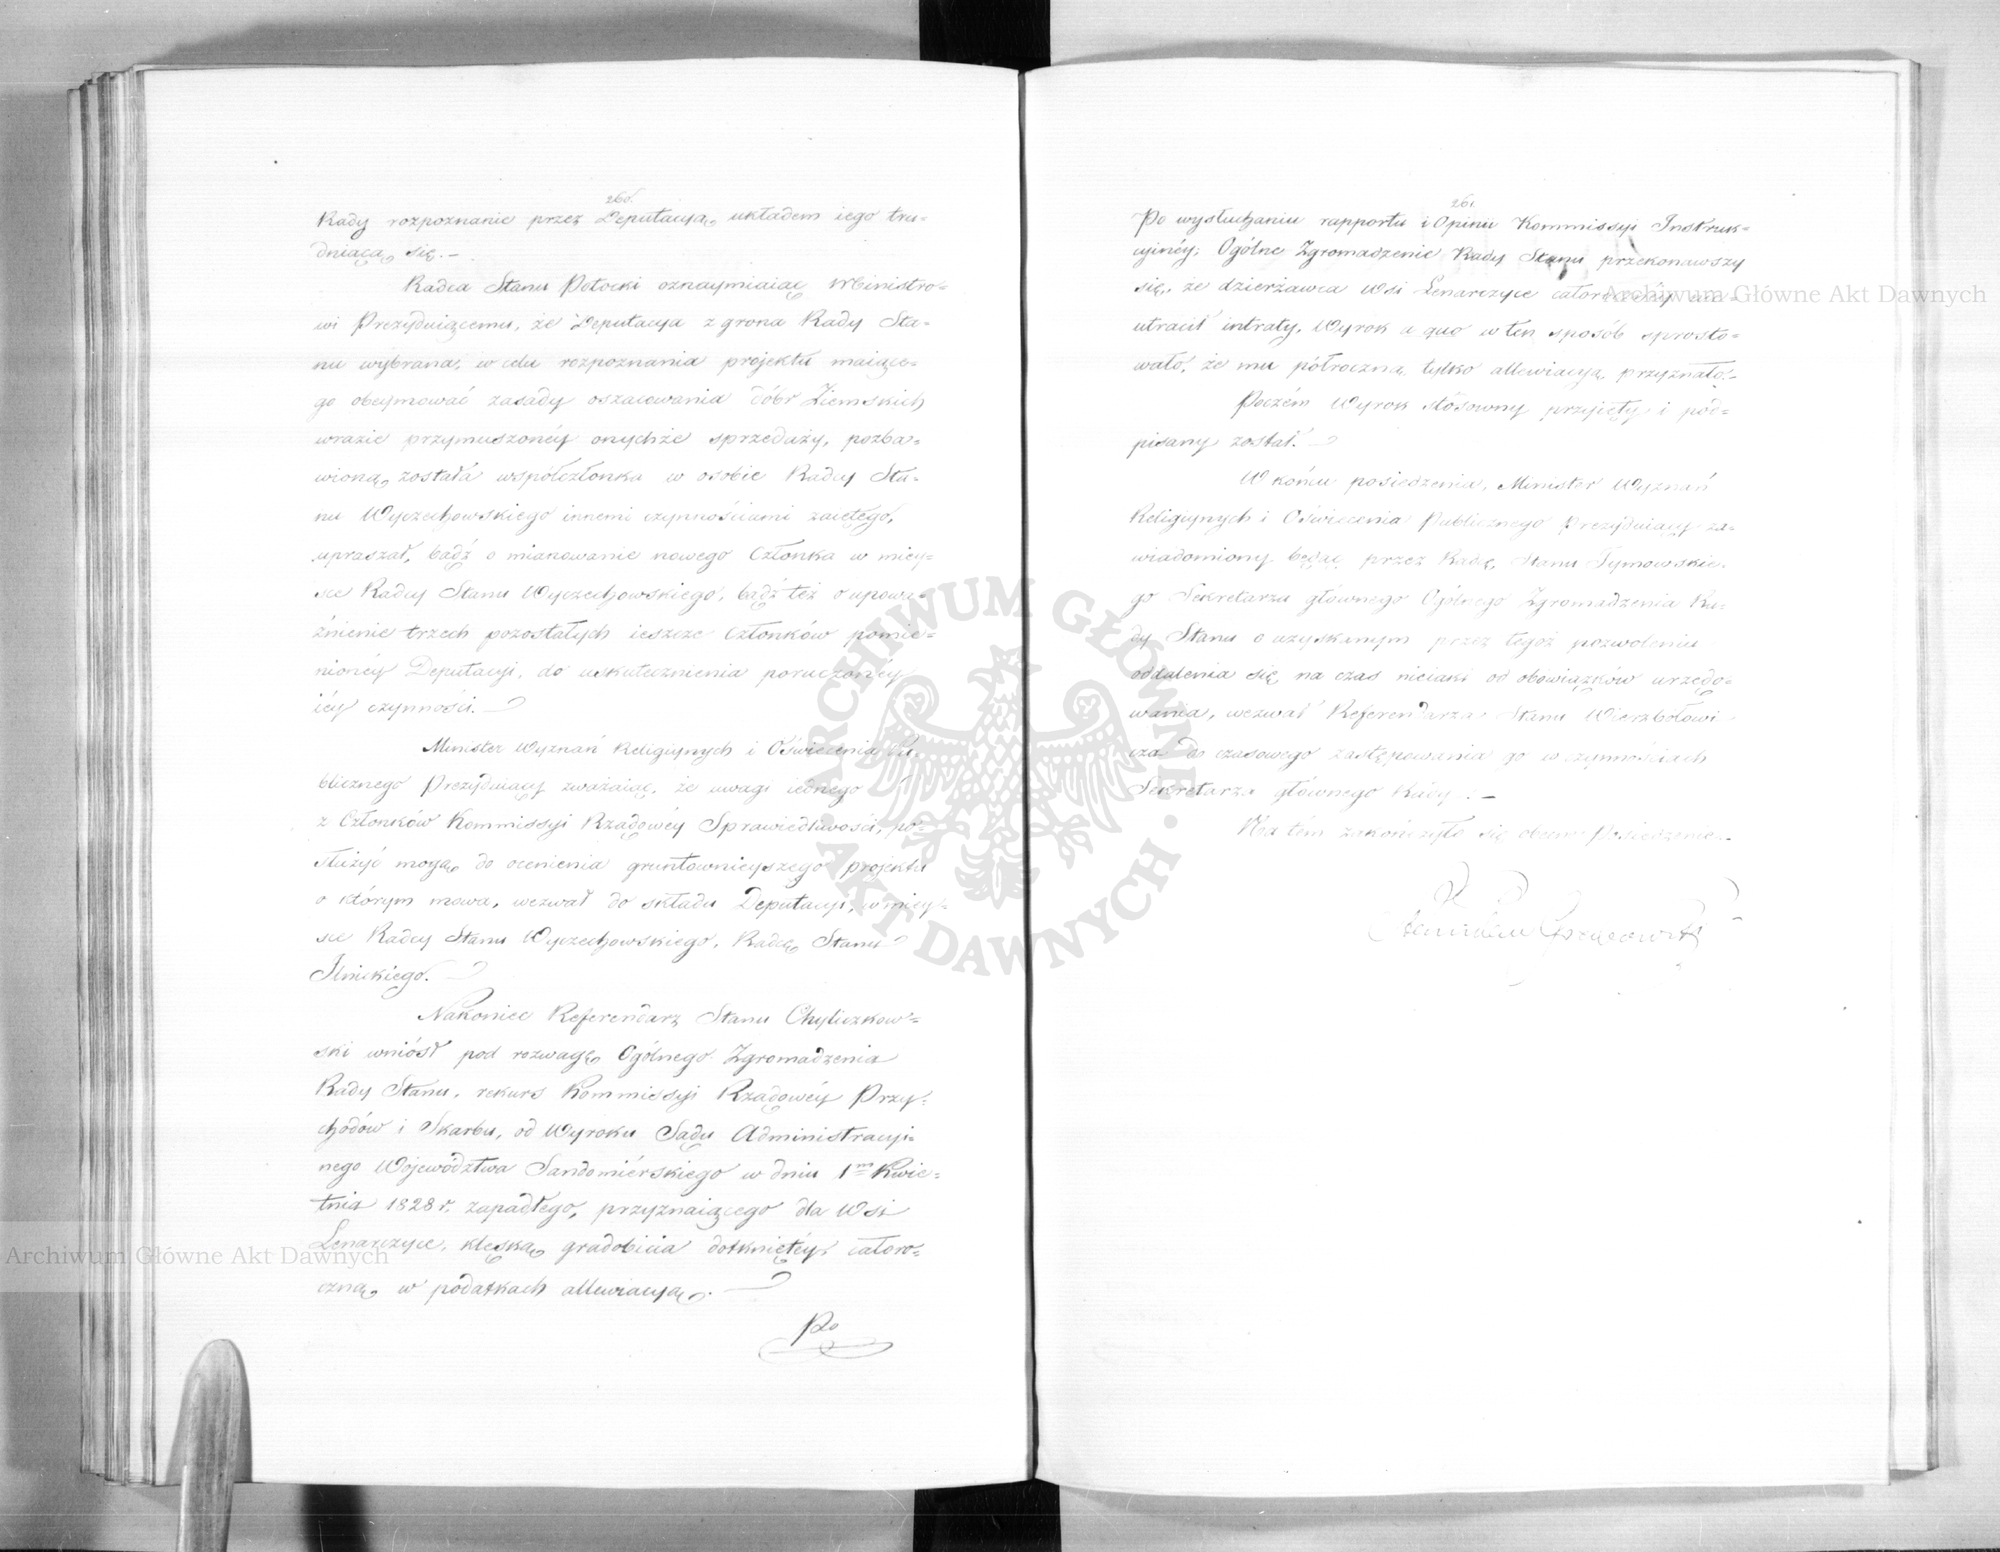 260.
Rady rozpoznanie przez Deputacyą, układem iego tru=
dniącą się.—
Radca Stanu Potocki oznaymiaiąc Ministro=
wi Prezyduiącemu, że Deputacya z grona Rady Sta=
nu wybrana, w celu rozpoznania projektu maiące=
go obeymować zasady oszacowania dóbr Ziemskich
w razie przymuszonéy onychże sprzedaży, pozba=
wioną została współczłonka w osobie Radcy Sta=
nu Wyczechowskiego innemi czynnościami zaiętego,
upraszał, bądź o mianowanie nowego Członka w miey=
sce Radcy Stanu Wyczechowskiego, bądź też o upowa=
żnienie trzech pozostałych ieszcze Członków pomie=
nionéy Deputacyi, do uskutecznienia poruczonéy
iéy czynności.—
Minister Wyznań Religiynych i Oświecenia Pu=
blicznego Prezyduiący zważaiąc, że uwagi iednego
z Członków Kommissyi Rządowéy Sprawiedliwości, po=
służyć mogą do ocenienia gruntownieyszego projektu
o którym mowa, wezwał do składu Deputacyi, w miey=
sce Radcy Stanu Wyczechowskiego, Radcę Stanu
Ilnickiego.—
Nakoniec Referendarz Stanu Chyliczkow=
ski wniósł pod rozwagę Ogólnego Zgromadzenia
Rady Stanu, rekurs Kommissyi Rządowéy Przy=
chodów i Skarbu, od Wyroku Sądu Administracyi=
nego Województwa Sandomiérskiego w dniu 1m Kwie=
tnia 1828 r. zapadłego, przyznaiącego dla Wsi
Lenarczyce, klęską gradobicia dotkniętéy, całoro=
czną, w podatkach allewiacyą.—
Po
261
Po wysłuchaniu rapportu i Opinii Kommissyi Instruk=
cyinéy, Ogólne Zgromadzenie Rady Stanu przekonawszy
się, że dzierżawca Wsi Lenarczyce całorocznéy nie
utracił intraty, Wyrok a quo w ten sposób sprosto=
wało, że mu półroczną tylko allewiacyą przyznało.—
Poczém Wyrok stósowny przyięty i pod=
pisany został.—
W końcu posiedzenia, Minister Wyznań
Religiynych i Oświecenia Publicznego Prezyduiący za=
wiadomiony będąc przez Radcę Stanu Tymowskie=
go Sekretarza głównego Ogólnego Zgromadzenia Ra=
dy Stanu o uzyskanym przez tegoż pozwoleniu
oddalenia się na czas nieiaki od obowiązków urzędo=
wania, wezwał Referendarza Stanu Wierzbołowi
cza do czasowego zastępowania go w czynnościach
Sekretarza głównego Rady.—
Na tém zakończyło się obecne Posiedzenie.—
Archiwum Główne Akt Dawnych
Archiwum Główne Akt Dawnych
ARCHIWUM GŁÓWNE
AKT DAWNYCH